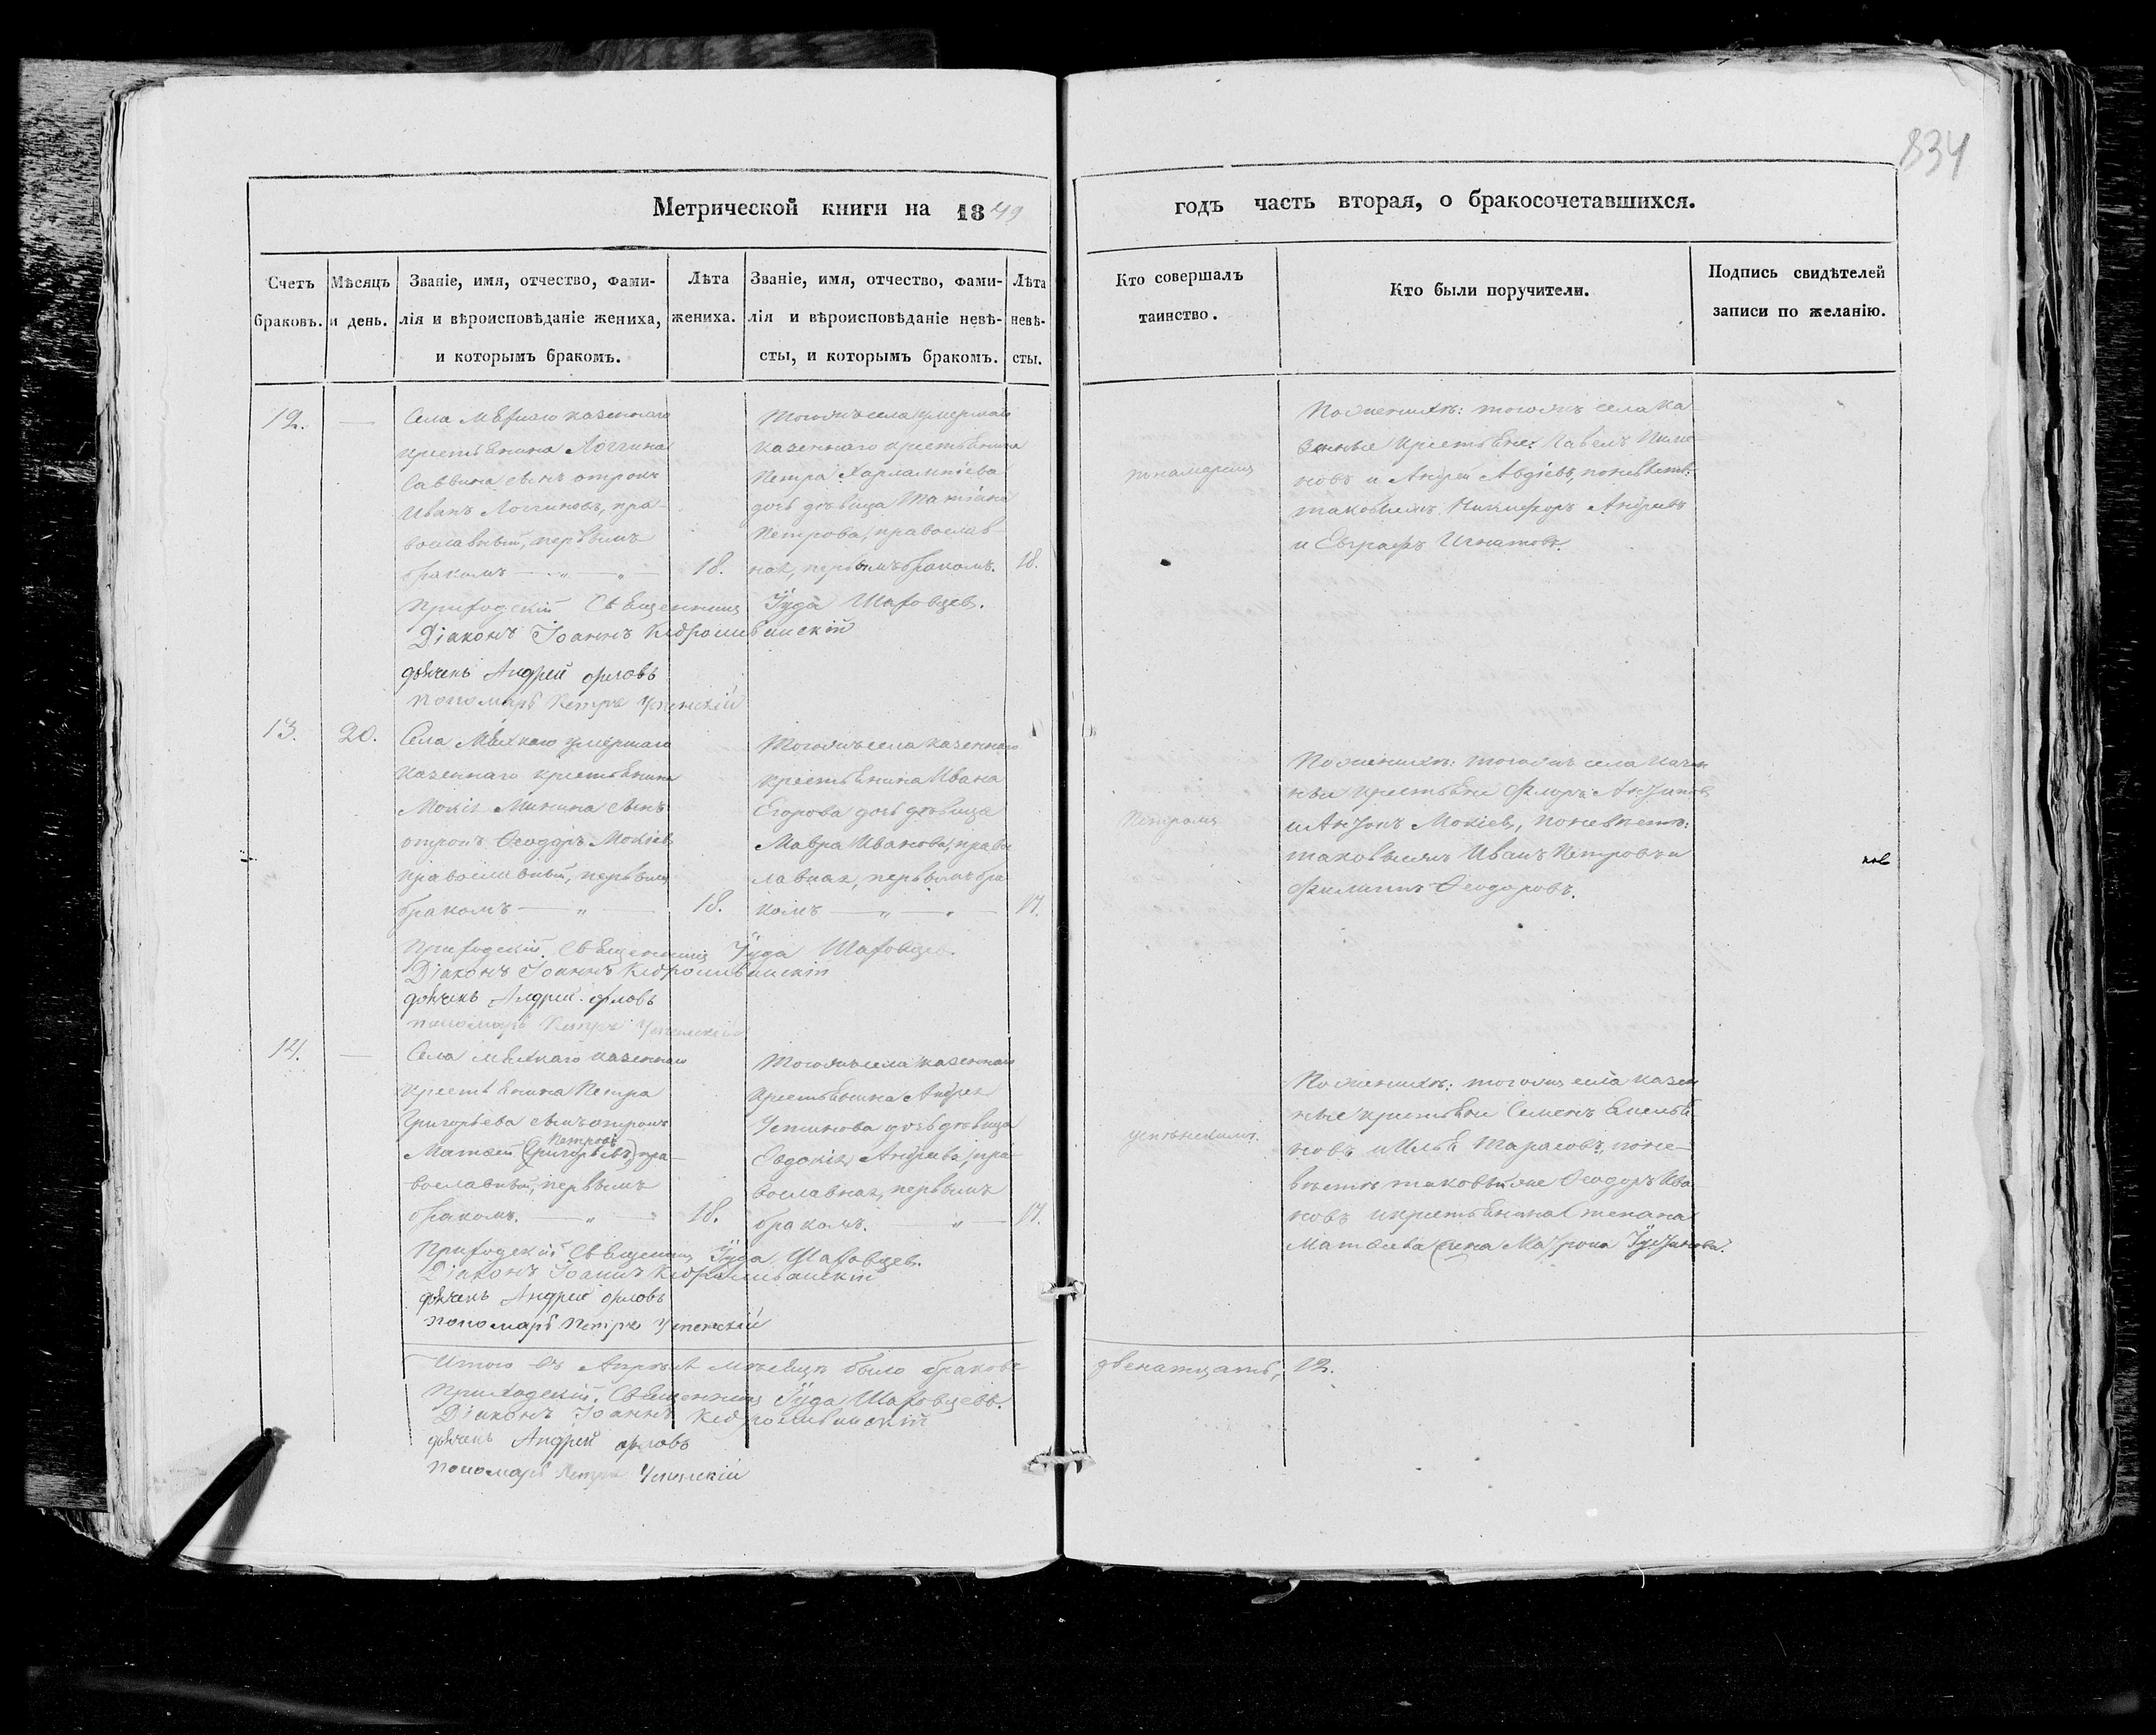 834
Метрической книги на 1849
годъ часть вторая, о бракосочетавшихся.
Счетъ браковъ.
Мѣсяцъ и день.
Званіе, имя, отчество, фами-
лія и вѣроисповѣданіе жениха,
и которымъ бракомъ.
Лѣта
жениха.
Званіе, имя, отчество, фами-
лія и вѣроисповѣданіе невѣ-
сты, и которымъ бракомъ.
Лѣта
невѣ-
сты.
Кто совершалъ
таинство.
Кто были поручители.
Подпись свидѣтелей
записи по желанію.
12.
Села казеннаго
крестьянина Логгина
Саввина сынъ отрокъ
Иванъ Логгиновъ, пра-
вославный, первымъ
бракомъ
18.
Тогожъ села умершаго
казеннаго крестьянина
Петра Харлампіева
дочь дѣвица Татіана
Петрова, православ-
ная, первымъ бракомъ.
18.
пономаремъ
По женихѣ: тогожъ села ка-
зенные крестьяне: Павелъ Пиме-
новъ и Андрей Авдіевъ, по невѣстѣ:
таковыежъ Никифоръ Андреевъ
и Евграфъ Игнатовъ.
Приходскій Священникъ Іуда Шаховцев.
Діаконъ Іоаннъ
дьячекъ Андрей орловъ
пономарь Петръ Успенскій
13.
20.
Села Мѣлкаго умершаго
казеннаго крестьянина
Мокія Минина сынъ
отрокъ Ѳеодоръ Мокіевъ
православный, первымъ
бракомъ
18.
Тогожъ села казеннаго
крестьянина Ивана
Егорова дочь дѣвица
Мавра Иванова, право
славная, первымъ бра
комъ
17.
Петромъ
По женихѣ: тогожъ села казен
ные крестьяне Флоръ
Мокіев, по невѣстѣ:
таковыежъ Иванъ Петровъ и
Филиппъ Ѳеодоровъ.
Приходскій Священникъ Іуда Шаховцев.
Діаконъ Іоаннъ
дьячекъ Андрей орловъ
пономарь Петръ Успенскій
14.
Села Мѣлкаго казеннаго
крестьянина Петра
Григорьева сынъ отрокъ
Петровъ
Матѳей (Григорьевъ) пра-
вославный, первымъ
бракомъ.
18.
Тогожъ села казеннаго
крестьянина Андрея
Устинова дочь дѣвица
Евдокія Андреева, пра-
вославная, первымъ
бракомъ.
17.
успѣнскимъ.
По женихѣ: тогожъ села казен
ные крестьяне Семенъ Емелья
новъ и Илья Тарасовъ, по не-
вѣстѣ таковыеже Ѳеодоръ Ива
новъ и крестьянина Степана
Матѳеева жена Матрона
Приходскій Священникъ Іуда Шаховцев.
Діаконъ Іоаннъ
дьячекъ Андрей орловъ
пономарь Петръ Успенскій
Итого въ Апрѣлѣ мѣсяцѣ было браковъ двенатцать, 12.
Приходскій Священникъ Іуда Шаховцевъ.
Діаконъ Іоаннъ
дьячекъ Андрей орловъ
пономарь Петръ Успенскій